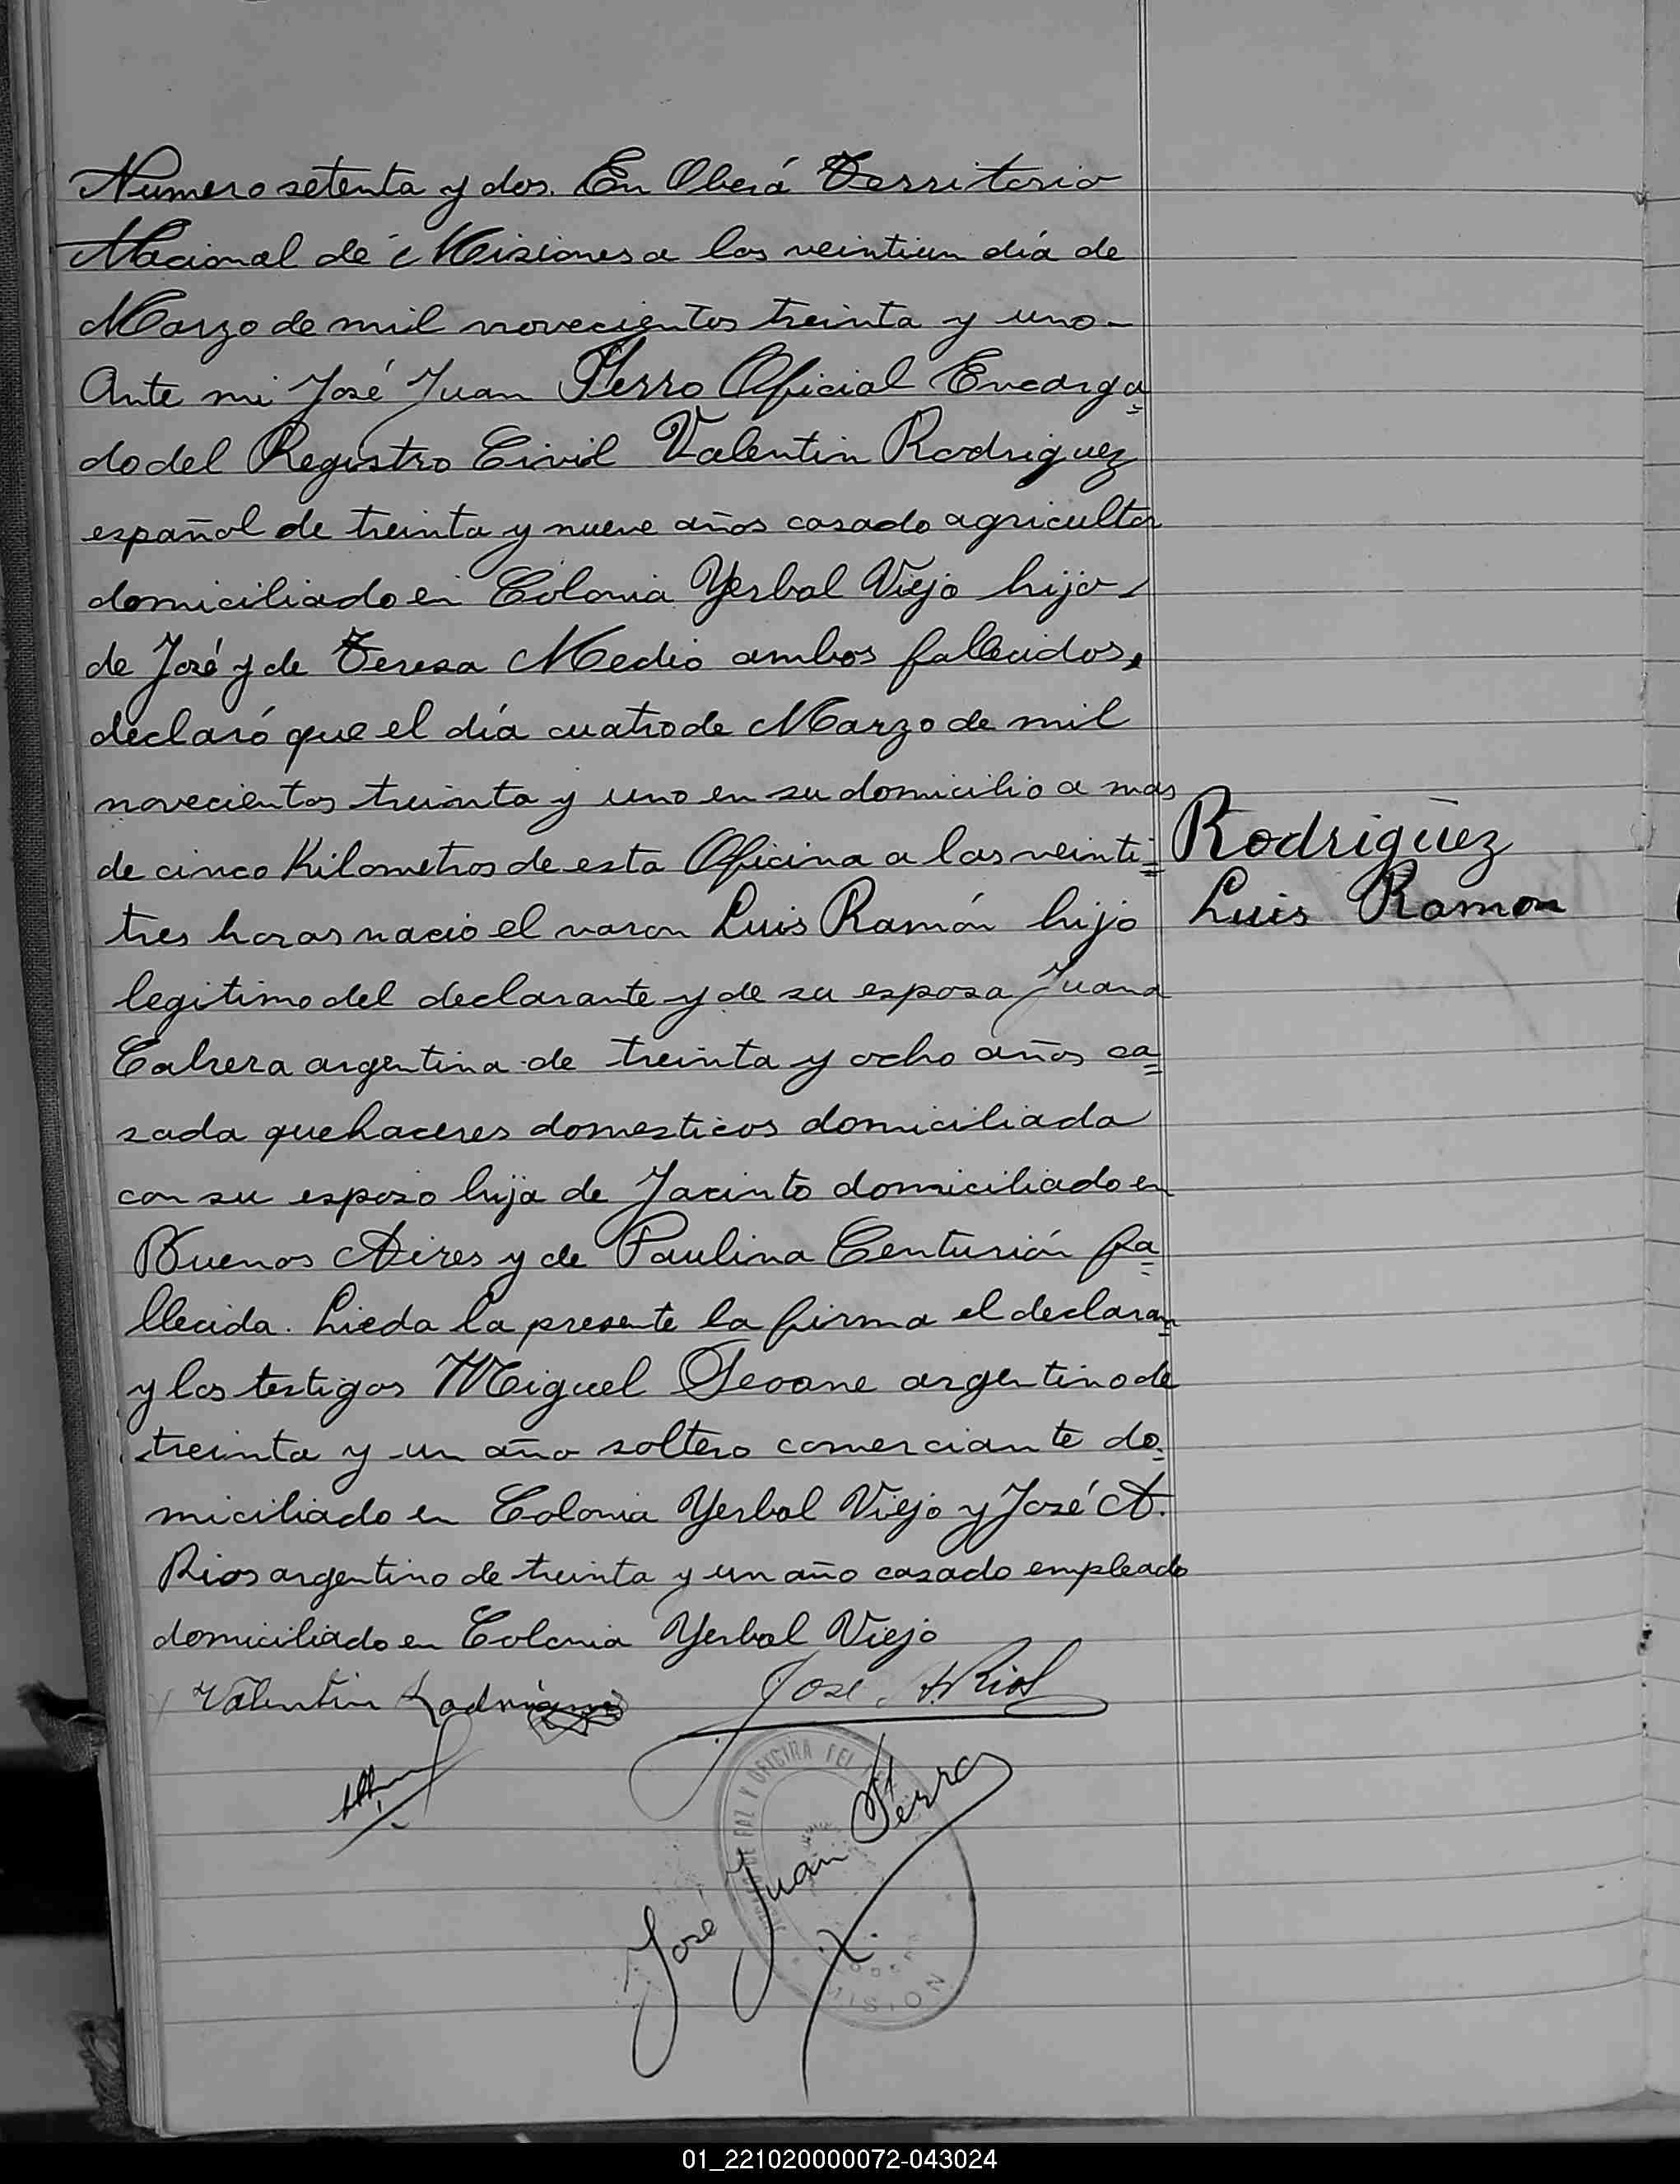 Numero setenta y dos. En Oberá Territorio
Nacional de Misiones a los veintiun día de
Marzo de mil novecientos treinta y uno-
Ante mi José Juan Ferro Oficial Encarga
do del Registro Civil Valentin Rodriguez
español de treinta y nueve años casado agricultor
domiciliado en Colonia Yerbal Viejo hijo
de José y de Teresa Medio ambos fallecidos,
declaró que el día cuatro de Marzo de mil
novecientos treinta y uno en su domicilio a mas
de cinco Kilometros de esta Oficina a las veinti=
tres horas nació el varon Luis Ramón hijo
legitimo del declarante y de su esposa Juana
Cabrera argentina de treinta y ocho años ca=
sada quehaceres domesticos domiciliada
con su esposo hija de Jacinto domiciliado en
Buenos Aires y de Paulina Centurión fa=
llecida. Lieda la presente la firma el declaran=
y los testigos Miguel Seoane argentino de
treinta y un año soltero comerciante do.
miciliado en Colonia Yerbal Viejo y José A.
Rios argentino de treinta y un año casado empleado
domiciliado en Colonia Yerbal Viejo
Rodriguez
Luis Ramon
Valentin Rodriguez
Jose A. Rios
José Juan Ferro
DE PAZ Y OFICINA DEL
MISION
01_221020000072-043024